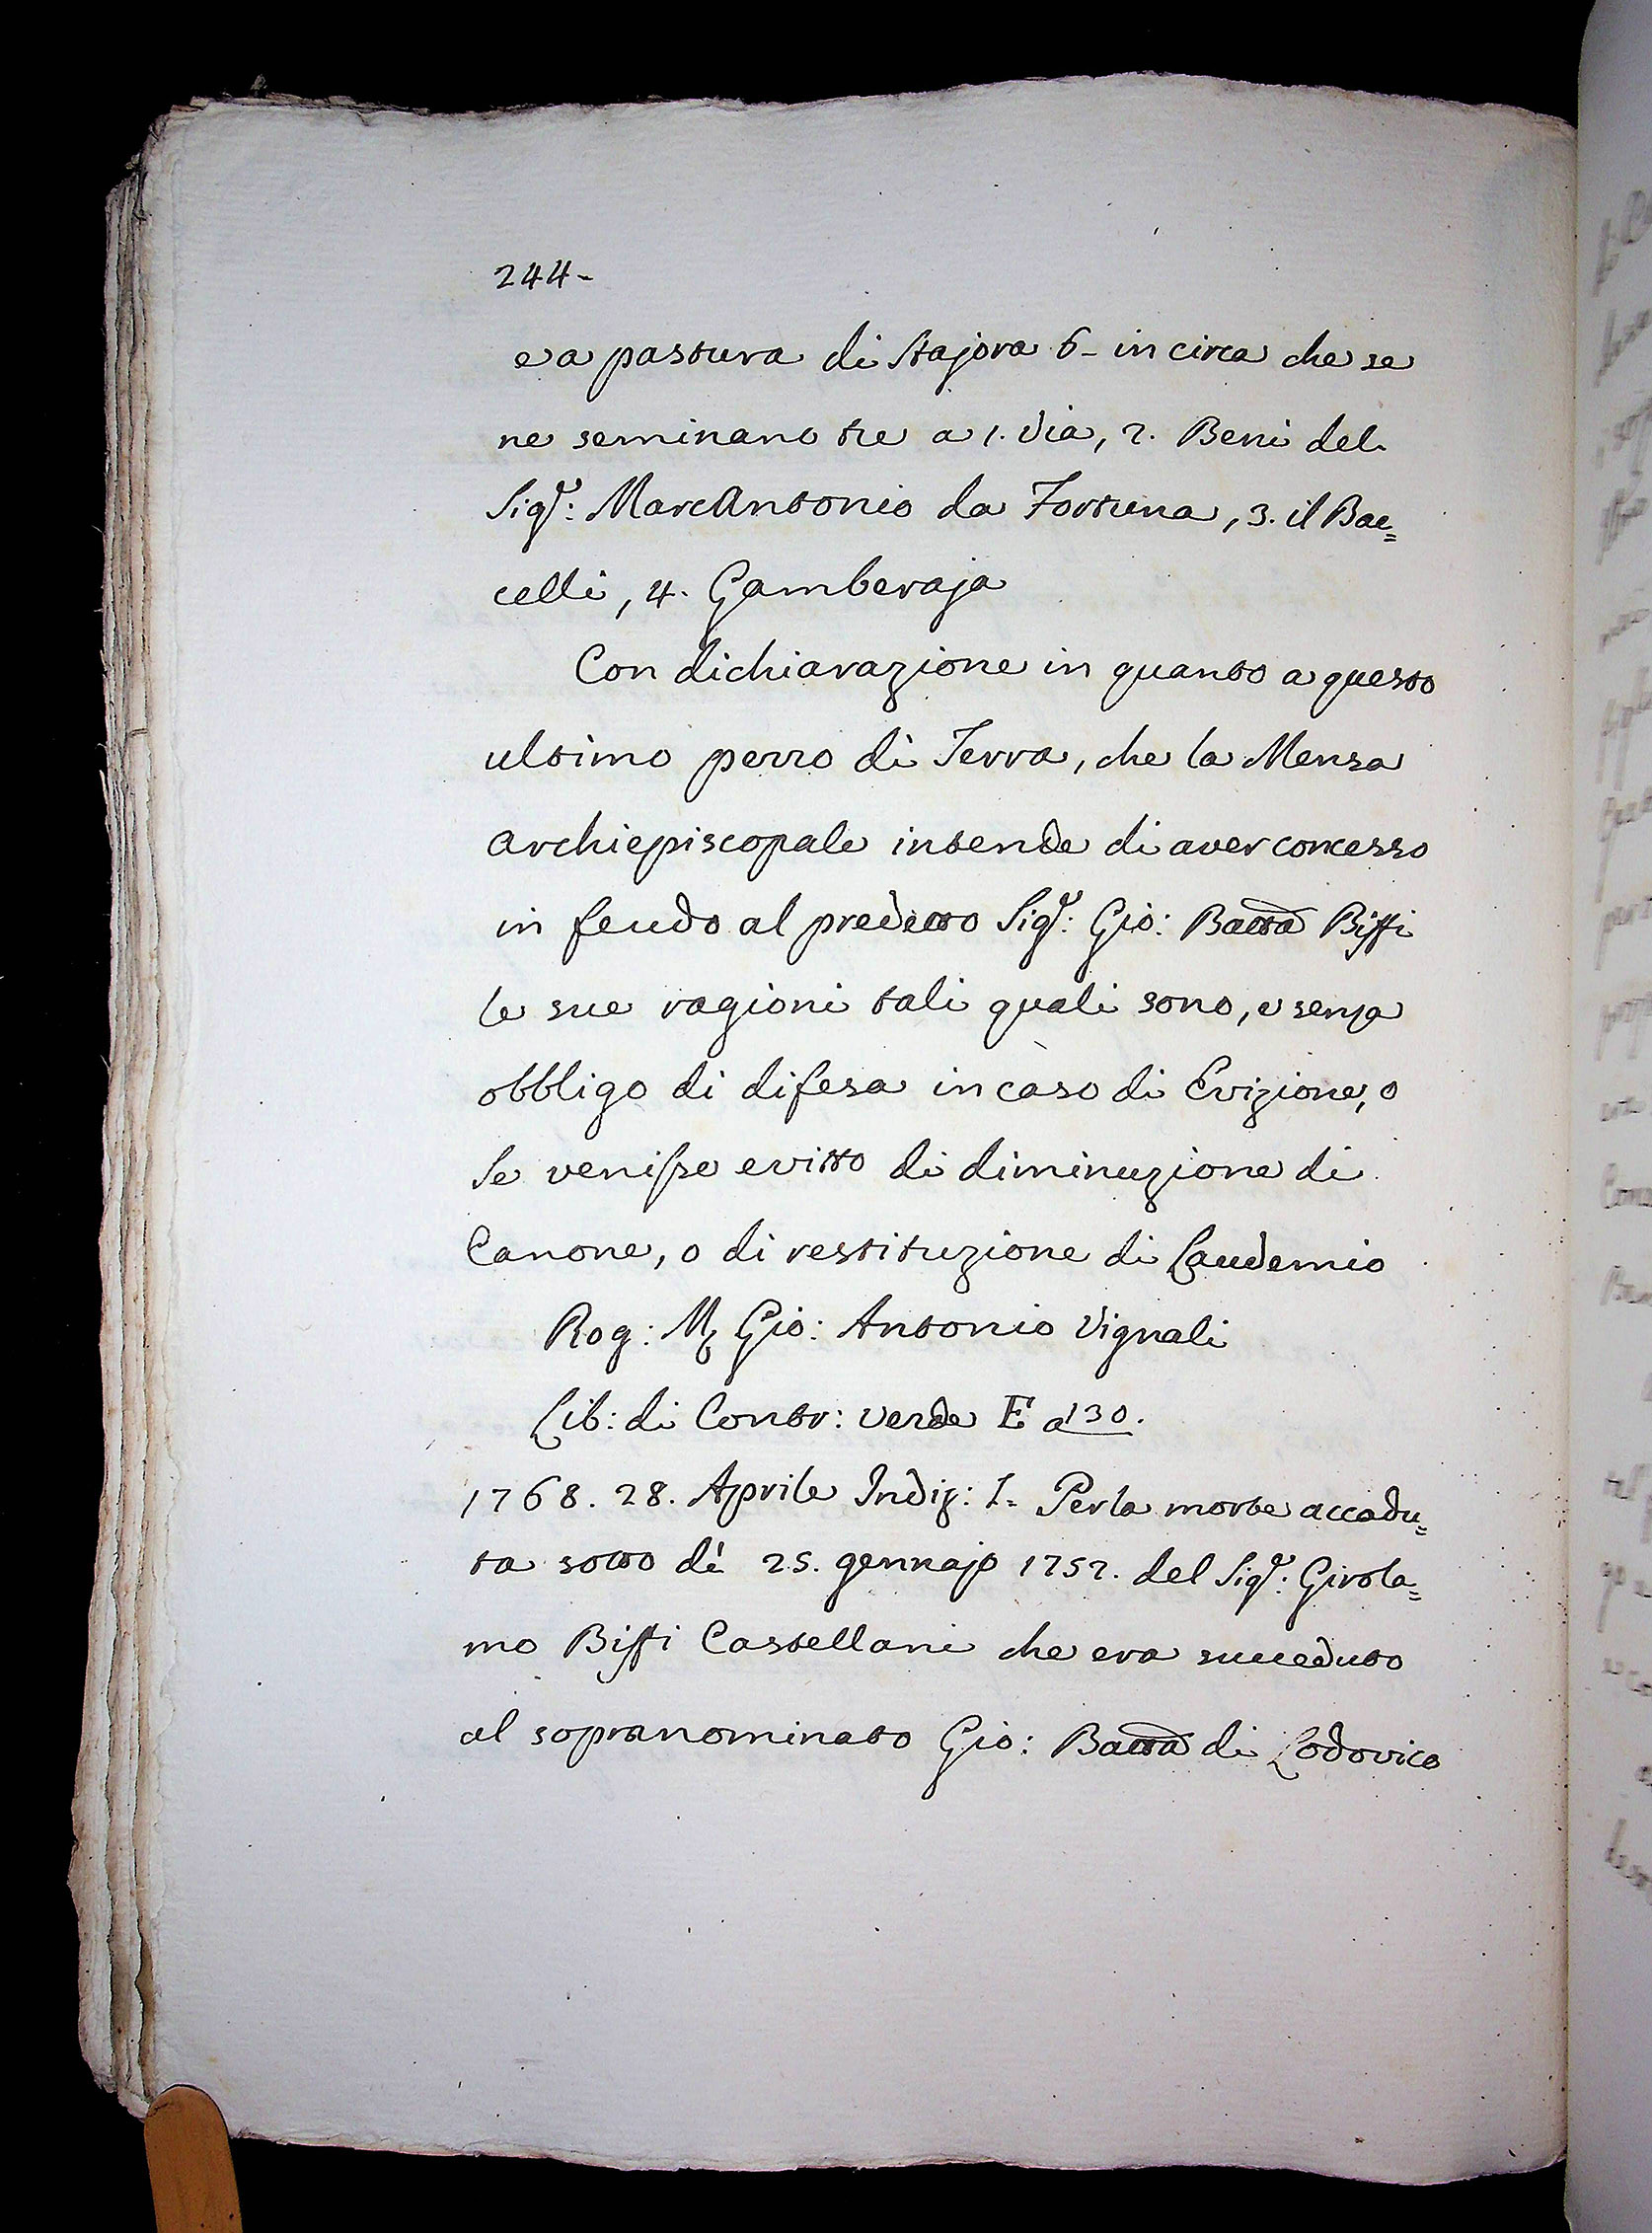 244-
e a pastura di Stajora 6- in circa che se
ne seminano tre a 1. Via, 2. Beni del
Sigr: MarcAntonio da Fortuna, 3. il Bac=
celli, 4. Gamberaja
Con dichiarazione in quanto a questo
ultimo pezzo di Terra, che la Mensa
Archiepiscopale intende di aver concesso
in feudo al predetto Sigr: Gio: Batta Biffi
le sue ragioni tali quali sono, e senza
obbligo di difesa in caso di Evizione, o
se venisse evitto di diminuzione di
Canone, o di restituzione di Laudemio
Rog: M Gio: Antonio Vignali
Lib: di Contr: verde E a 130.
1768. 28. Aprile Indiz: I= Per la morte accadu=
ta sotto dì 25. gennajo 1752. del Sigr: Girola=
mo Biffi Castellani che era succeduto
al sopranominato Gio: Batta di Lodovico